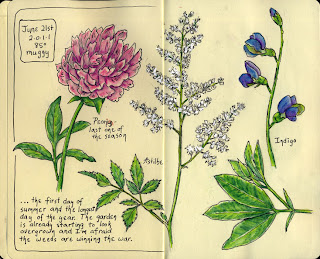 June 21st
2.0.1.1
85°
muggy
Peony
last one of
the season
Astilbe
Indigo
... the first day of
summer and the longest
day of the year. The garden
is already starting to look
overgrown and I'm afraid
the weeds are winning the war.